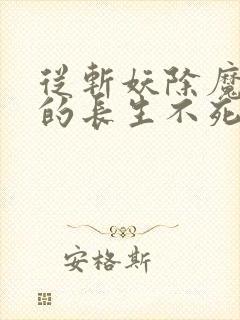 從斬妖除魔
的長生不死
安格斯